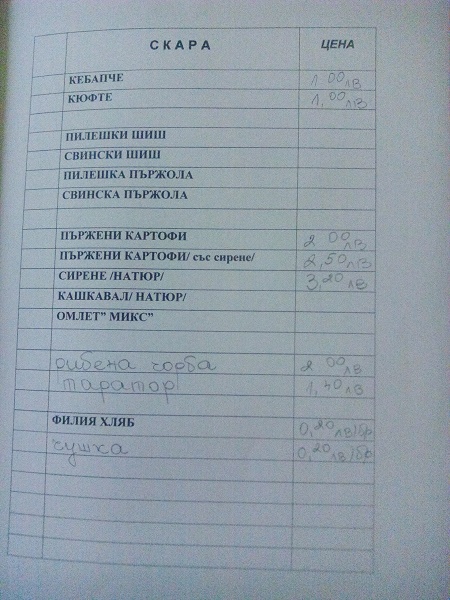 СКАРА ЦЕНА
КЕБАПЧЕ 1.00лв
КЮФТЕ 1,00лв
ПИЛЕШКИ ШИШ
СВИНСКИ ШИШ
ПИЛЕШКА ПЪРЖОЛА
СВИНСКА ПЪРЖОЛА
ПЪРЖЕНИ КАРТОФИ 2 00лв
ПЪРЖЕНИ КАРТОФИ/ със сирене/ 2,50лв
СИРЕНЕ /НАТЮР/ 3,20лв
КАШКАВАЛ/ НАТЮР/
ОМЛЕТ” МИКС”
рибена чорба 2 00лв
таратор 1,40лв
ФИЛИЯ ХЛЯБ 0,20лв/бр
чушка 0,20лв/бр